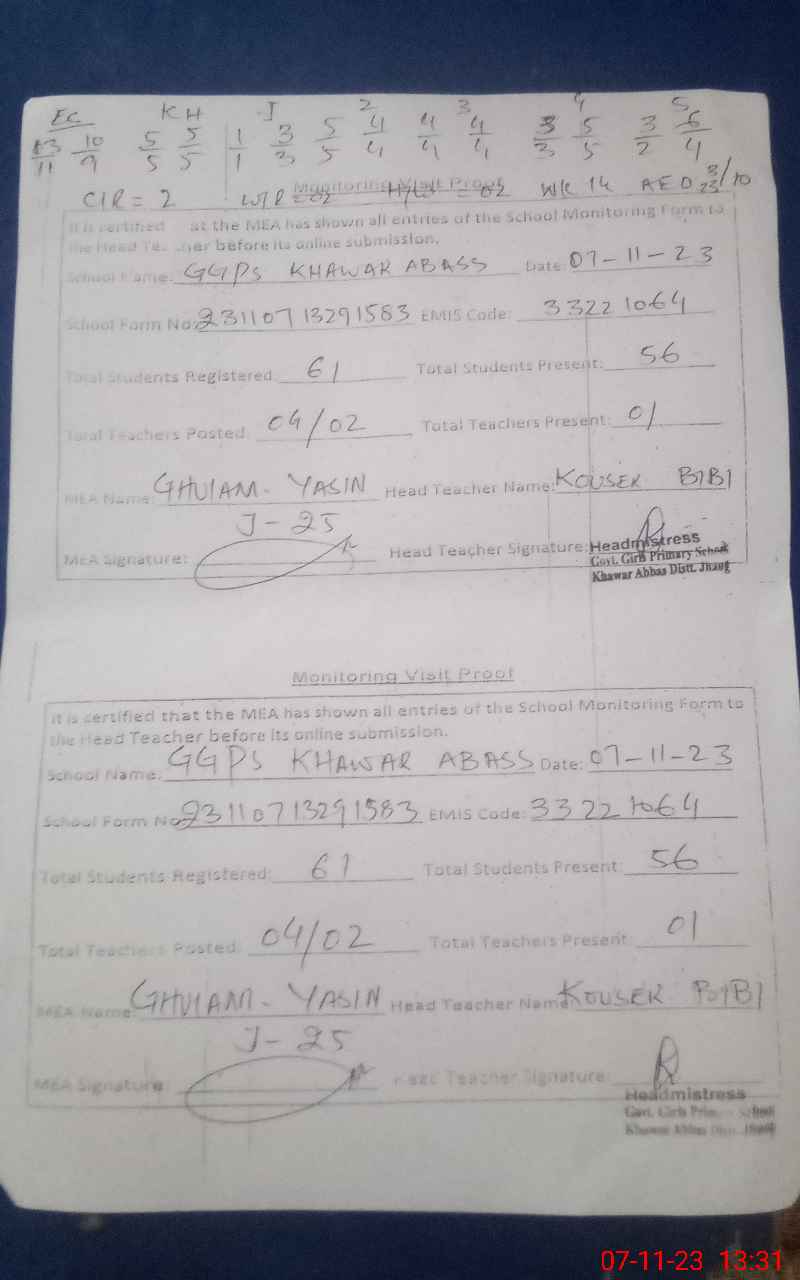 EC KH J 2 3 4 5
13/11 10/9 5/5 5/5 1/1 3/3 5/5 4/4 4/4 4/4 3/3 5/5 3/2 6/4
CIR = 2 WR = 02 = 02 WR 14 AEO 3/10 23
Monitoring Visit Proof
It is certified at the MEA has shown all entries of the School Monitoring Form to
the Head Te her before its online submission.
School Name: GGPS KHAWAR ABASS Date: 07-11-23
School Form No: 23110713291583 EMIS Code: 33221064
Total Students Registered: 61 Total Students Present: 56
Total Teachers Posted: 04/02 Total Teachers Present: 01
MEA Name: GHULAM. YASIN Head Teacher Name: KOUSER BIBI
J-25
MEA Signature: Head Teacher Signature: Headmistress
Govt. Girls Primary School
Khawar Abbas Distt. Jhang
Monitoring Visit Proof
It is certified that the MEA has shown all entries of the School Monitoring Form to
the Head Teacher before its online submission.
School Name: GGPS KHAWAR ABASS Date: 07-11-23
School Form No: 23110713291583 EMIS Code: 33221064
Total Students Registered: 61 Total Students Present: 56
Total Teachers Posted: 04/02 Total Teachers Present: 01
MEA Name: GHULAM. YASIN Head Teacher Name: KOUSER BIBI
J-25
MEA Signature: Head Teacher Signature:
Headmistress
Govt. Girls Prim School
Khawar Abbas Distt. Jhang
07-11-23 13:31